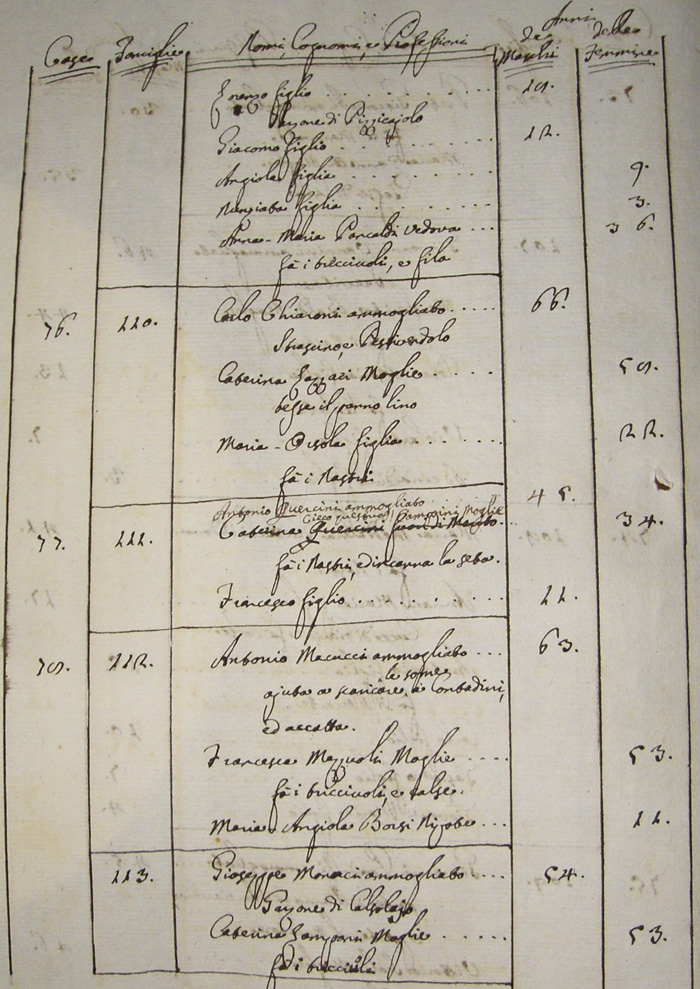 Case Famiglie Nomi, Cognomi, e Professioni Anni
de Maschi delle Femmine
figlio 19.
Garzone di Pizzicajolo
Giacomo figlio 12.
Angiola figlia 9.
Nunziata figlia 3.
Anna-Maria vedova 36.
fà i bucciuoli, e fila
76. 110. Carlo Chiaroni ammogliato 66.
Strascino, e Pescivendolo
Caterina Moglie 59.
tesse il panno lino
Maria-Orsola figlia 22.
fà i Nastri
Antonio Quercini ammogliato 45.
77. 111. Caterina Quercini Moglie 34.
fà i Nastri, ed incanna la seta.
Francesco figlio 11.
79. 112. Antonio Macucci ammogliato 63.
le some
ajuta a scaricare a Contadini,
ed accatta.
Francesca Mazzuoli Moglie 53.
fà i bucciuoli, e calze.
Maria-Angiola Borsi Nipote 11.
113. Giuseppe Monaci ammogliato 54.
Garzone di Calzolajo
Caterina Zamponi Moglie 53.
fà i bucciuoli